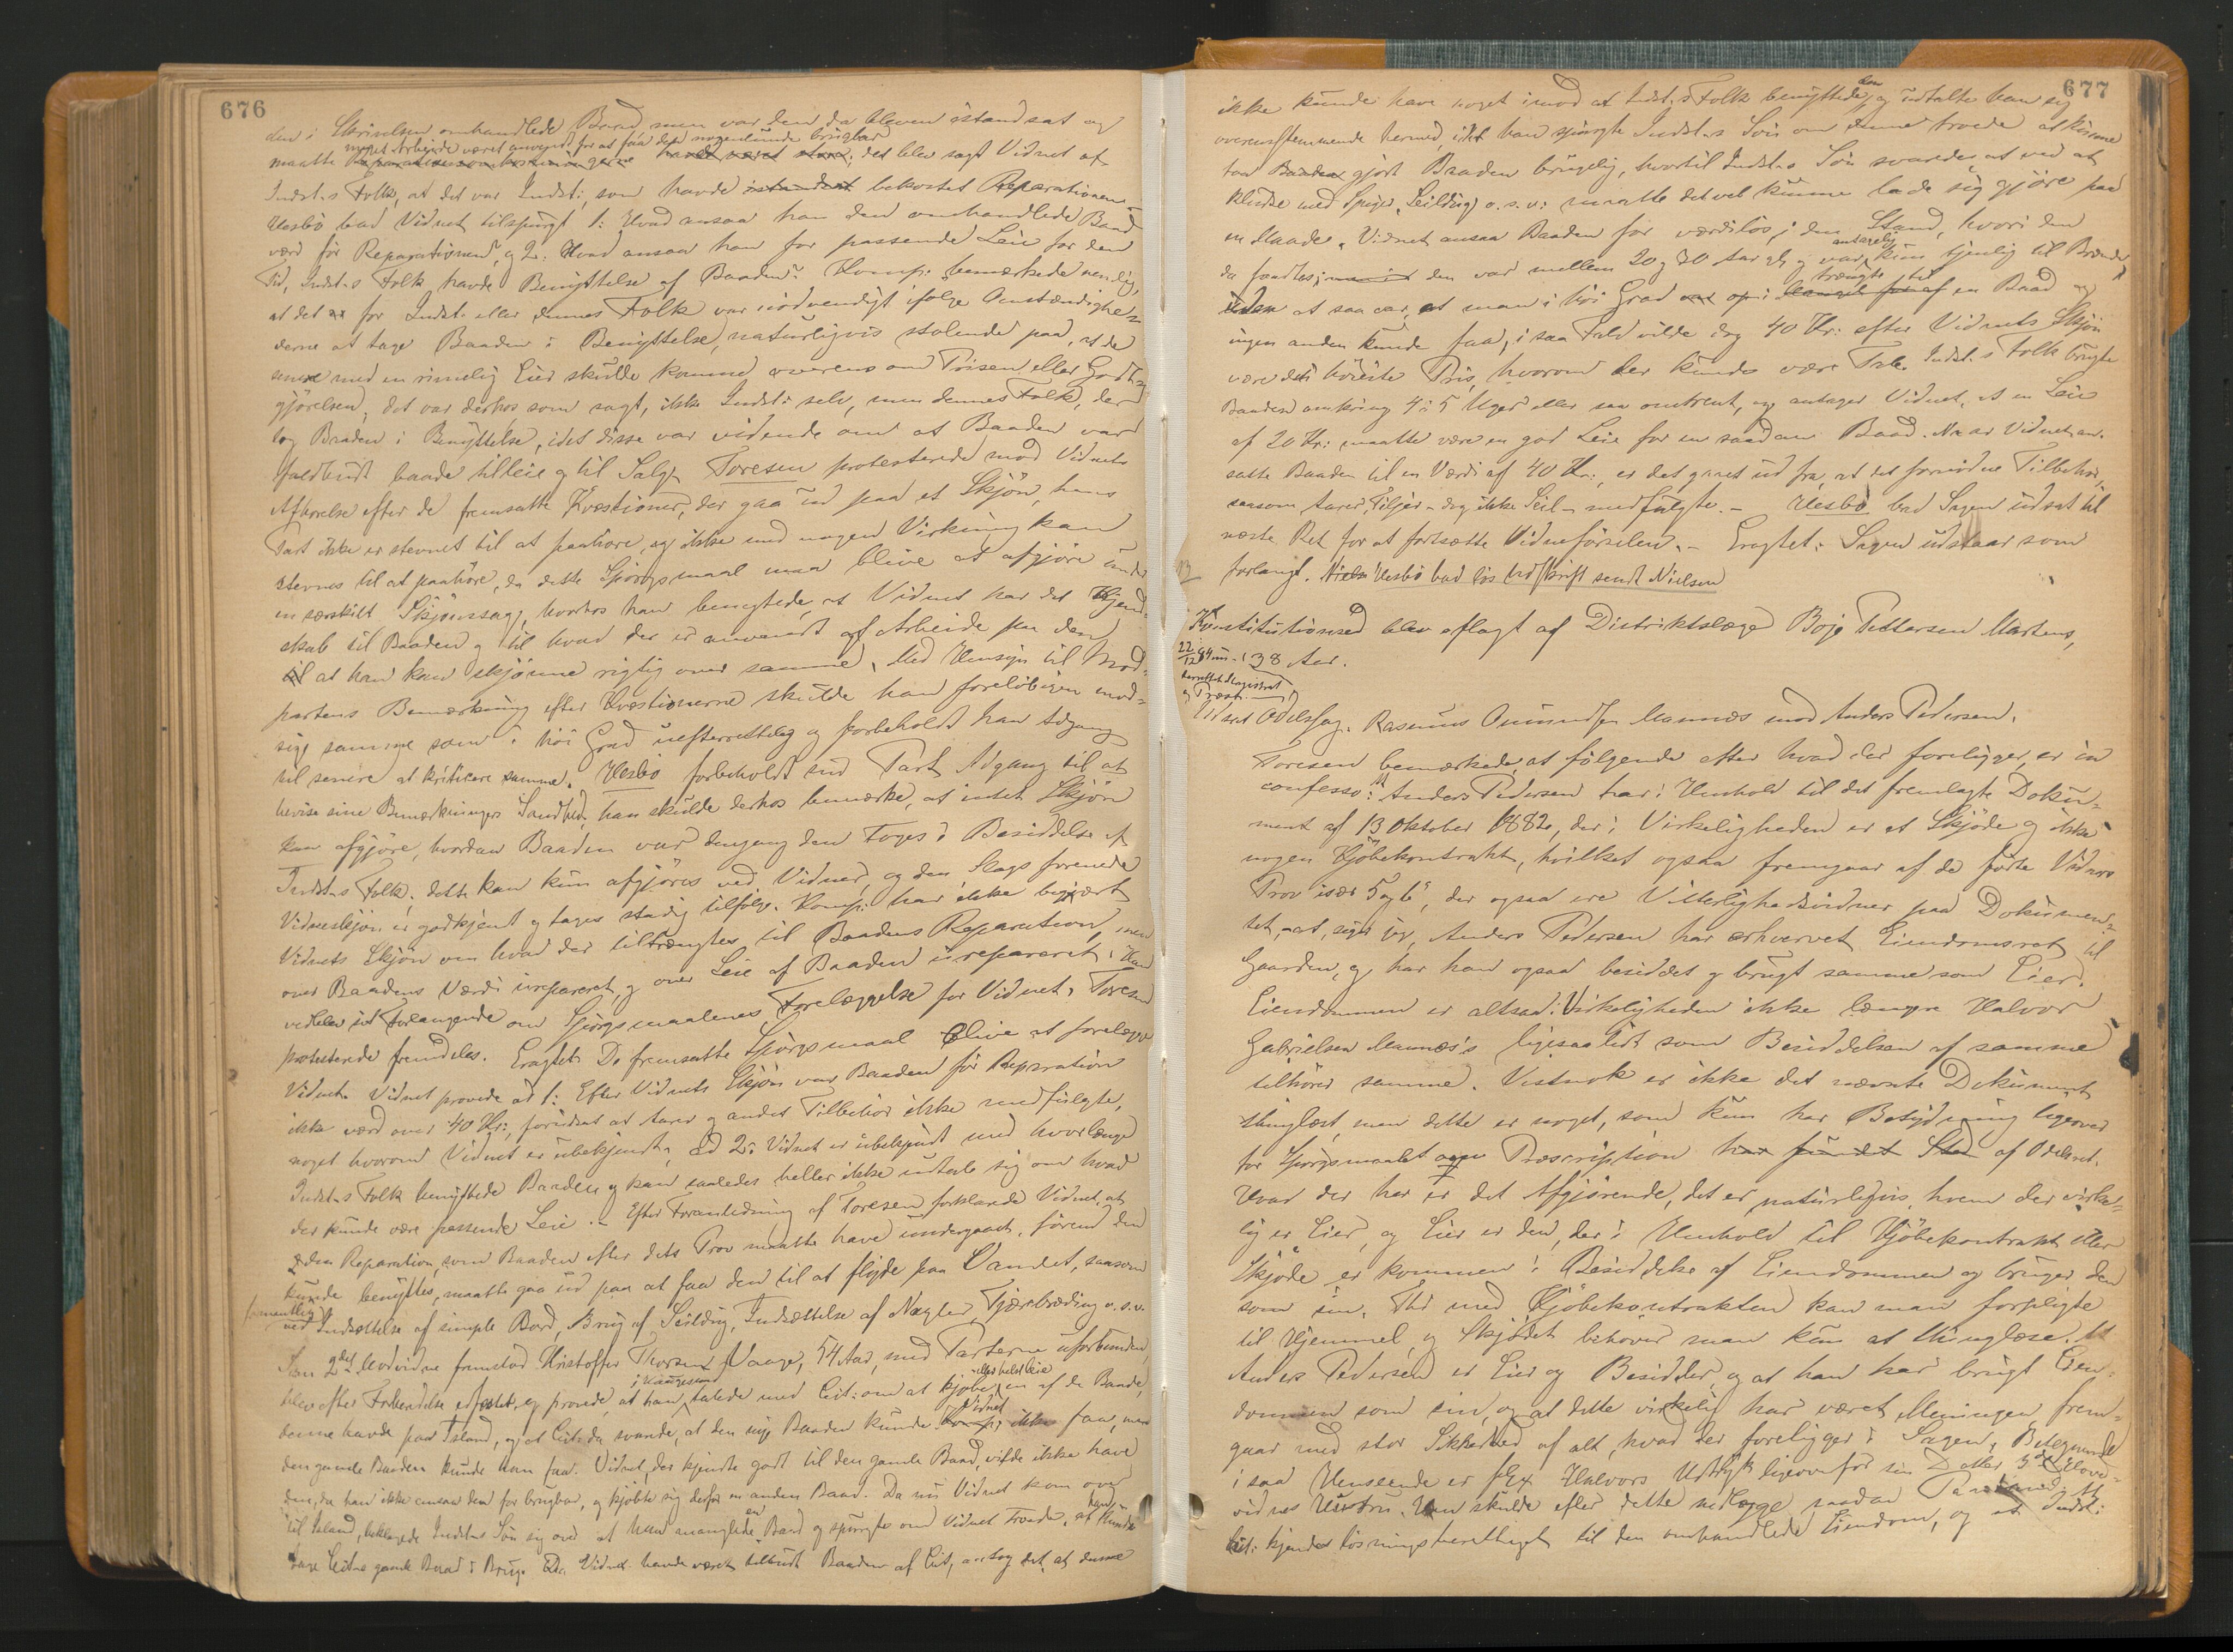 676
den i Skrivelsen omhandlede Baad, men var den da bleven istandsat og
meget Arbeide været anvendt for at faa den nogenlunde brugbar
maatte havde været stort; det blev sagt Vidnet af
Indst.s Folk, at det var Indst:, som havde istandsat bekostet Reparationen.
Uesbø bad Vidnet tilspurgt 1: Hvad ansaa han den omhandlede Baad
værd før Reparationen, og 2: Hvad ansaa han for passende Leie for den
Tid, Indst.s Folk havde Benyttelse af Baaden? Komp: bemærkede nemlig,
at det for Indst: eller dennes Folk var nødvendigt ifølge Omstændighe-
derne at tage Baaden i Benyttelse, naturligvis stolende paa, at de
senere med en rimelig Eier skulde komme overens om Prisen eller Godt-
gjørelsen, det var derhos som sagt, ikke Indst: selv, men dennes Folk, der
tog Baaden i Benyttelse, idet disse var vidende om at Baaden var
falbudt baade tilleie og til Salg. Toresen protesterede mod Vidnets
Afhørelse efter de fremsatte Kvæstioner, der gaa ud paa et Skjøn, hans
Part ikke er stevnet til at paahøre, og ikke med nogen Virkning kan
stevnes til at paahøre, da dette Spørgsmaal maa blive at afgjøre under
en særskilt Skjønssag, hvorhos han benegtede, at Vidnet har det Kjend-
skab til Baaden og til hvad der er anvendt af Arbeide paa den
til at han kan skjønne rigtig over samme. Med Hensyn til Mod-
partens Bemærkning efter Kvæstionerne skulde han foreløbigen mod-
sige samme som i høi Grad uefterrettelig og forbeholdt han Adgang
til senere at kritisere samme. Uesbø forbeholdt sin Part Adgang til at
bevise sine Bemærkningers Sandhed, han skulde derhos bemærke, at intet Skjøn
kan afgjøre, hvordan Baaden var dengang den toges i Besiddelse af
Indst.s Folk; dette kan kun afgjøres ved Vidner, og den Slags forenede
Vidneskjøn er godkjent og tages stadig tilfølge. Komp: har ikke begjært
Vidnets Skjøn om hvad der tiltrængtes til Baadens Reparation, men
over Baadens Værdi urepareret, og over Leie af Baaden urepareret. Han
vedblev sit Forlangende om Spørgsmaalenes Forelæggelse for Vidnet. Toresen
protesterede fremdeles. Eragtet: De fremsatte Spørgsmaal blive at forelægge
Vidnet. Vidnet provede ad 1: Efter Vidnets Skjøn var Baaden før Reparation
ikke værd over 40 Kr:, forudsat at Aarer og andet Tilbehør ikke medfulgte,
noget hvorom Vidnet er ubekjendt. ad 2: Vidnet er ubekjendt med hvorlænge
Indst.s Folk benyttede Baaden og kan saaledes heller ikke udtale sig om hvad
der kunde være passende Leie. – Efter Foranledning af Toresen forklarede Vidnet, at
den Reparation, som Baaden efter dets Prov maatte have undergaaet, førend den
kunde benyttes, maatte gaa ud paa at faa den til at flyde paa Vandet, saasom
formentlig
ved Indsættelse af simple Bord, Brug af Seildug, Indsættelse af Nagler, Tjærebræding o.s.v.
Som 2det Modvidne fremstod Kristoffer Thorsen Vaage, 54 Aar, med Parterne uforbunden,
i Haugesund eller helst leie
blev efter Forberedelse edfæstet, og provede, at han talede med Cit: om at kjøbe en af de Baade,
Vidnet
denne havde paa Island, og at Cit: da svarede, at den nye Baaden kunde ikke faa, men
den gamle Baaden kunde han faa. Vidnet, der kjendte godt til den gamle Baad, vilde ikke have
den, da han ikke ansaa den for brugbar, og kjøbte sig derfor en anden Baad. Da nu Vidnet kom over
en han
til Island, beklagede Indst.s Søn sig over at han manglede Baad og spurgte om Vidnet troede, at kunde
tage Cit.s gamle Baad i Brug. Da Vidnet havde været tilbudt Baaden af Cit, antog det, at denne
677
den
ikke kunde have noget imod at Indst.s Folk benyttede, og udtalte han sig
overensstemmende hermed, idet han spurgte Indst.s Søn om denne troede at kunne
faa Baaden gjort Baaden brugelig, hvortil Indst.s Søn svarede, at ved at
kludre med Spiger, Seildug o.s.v: maatte det vel kunne lade sig gjøre paa
en Maade. Vidnet ansaa Baaden for værdiløs i den Stand, hvori den
antagelig
da fandtes; den var mellem 20 og 30 Aar gl. og var kun tjenlig til Brænde
trængte til
uden at saa var, at man i høi Grad en Baad og
ingen anden kunde faa, i saa Fald vilde dog 40 Kr: efter Vidnets Skjøn
være den høieste Pris, hvorom der kunde være Tale. Indst.s Folk brugte
Baaden omkring 4 à 5 Uger eller saa omtrent, og antager Vidnet, at en Leie
af 20 Kr: maatte være en god Leie for en saadan Baad. Naar Vidnet an-
satte Baaden til en Værdi af 40 Kr:, er det gaaet ud fra, at det fornødne Tilbehør,
saasom Aarer, Tiljer – dog ikke Seil – medfulgte. – Uesbø bad Sagen udsat til
næste Ret for at fortsætte Vidneførselen. – Eragtet: Sagen udstaar som
forlangt. Uesbø bad løs Udskrift sendt Nielsen
Konstitutionsed blev aflagt af Distriktslæge Boje Pettersen Martens,
22/12 84 38 Aar.
Udsat Odelssag. Rasmus Omundsen Mannæs mod Anders Pedersen.
Toresen bemærkede, at følgende efter hvad der foreligger, er in
confesso: At Anders Pedersen har i Henhold til det fremlagte Doku-
ment af 13 Oktober 1882, der i Virkeligheden er et Skjøde og ikke
nogen Kjøbekontrakt, hvilket ogsaa fremgaar af de førte Vidners
Prov især 5 og 6, der ogsaa ere Vitterlighedsvidner paa Dokumen-
tet, – at, siger jeg, Anders Pedersen har erhvervet Eiendomsret til
Gaarden, og har han ogsaa besiddet og brugt samme som Eier.
Eiendommen er altsaa i Virkeligheden ikke længer Halvor
Gabrielsen Mannæs's ligesaalidt som Besiddelsen af samme
tilhører samme. Vistnok er ikke det nævnte Dokument
thinglæst, men dette er noget, som kun har Betydning ligeover
for Spørgsmaalet om Præscription har fundet Sted af Odelsret.
Hvad der her er det Afgjørende, det er naturligvis, hvem der virke-
lig er Eier, og Eier er den, der i Henhold til Kjøbekontrakt eller
Skjøde er kommen i Besiddelse af Eiendommen og bruger den
som sin. Thi med Kjøbekontrakten kan man forpligte
til Hjemmel, og Skjødet behøver man kun at thinglæse. At
Anders Pedersen er Eier og Besidder, og at han har brugt Eien-
dommen som sin, og at dette virkelig har været Meningen, frem-
gaar med stor Sikkerhed af alt, hvad der foreligger i Sagen. Betegnende
i saa Henseende er f. Ex. Halvors Udtryk ligeoverfor sin Datter, 3die Hoved-
vidnes Hustru. Han skulde efter dette nedlægge saadan Paastand: At
Cit: kjendes løsningsberettiget til den omhandlede Eiendom, og at Indst: